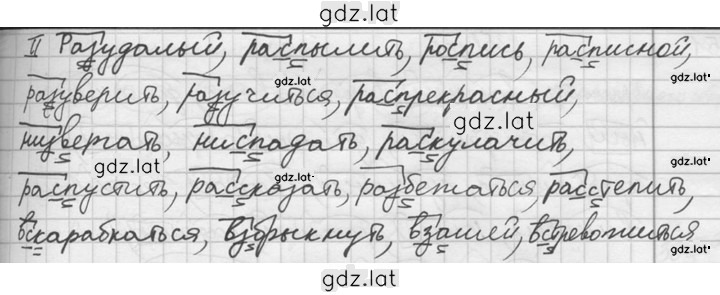 gdz.lat
II Разудалый, распылить, роспись, расписной,
gdz.lat
gdz.lat
разуверить, разучиться, распрекрасный,
gdz.lat
низвергать, ниспадать, раскулачить,
gdz.lat
gdz.lat
распустить, рассказать, разбежаться, расстелить,
gdz.lat
вскарабкаться, взбрыкнуть, взашей, встревожиться
gdz.lat
gdz.lat
gdz.lat